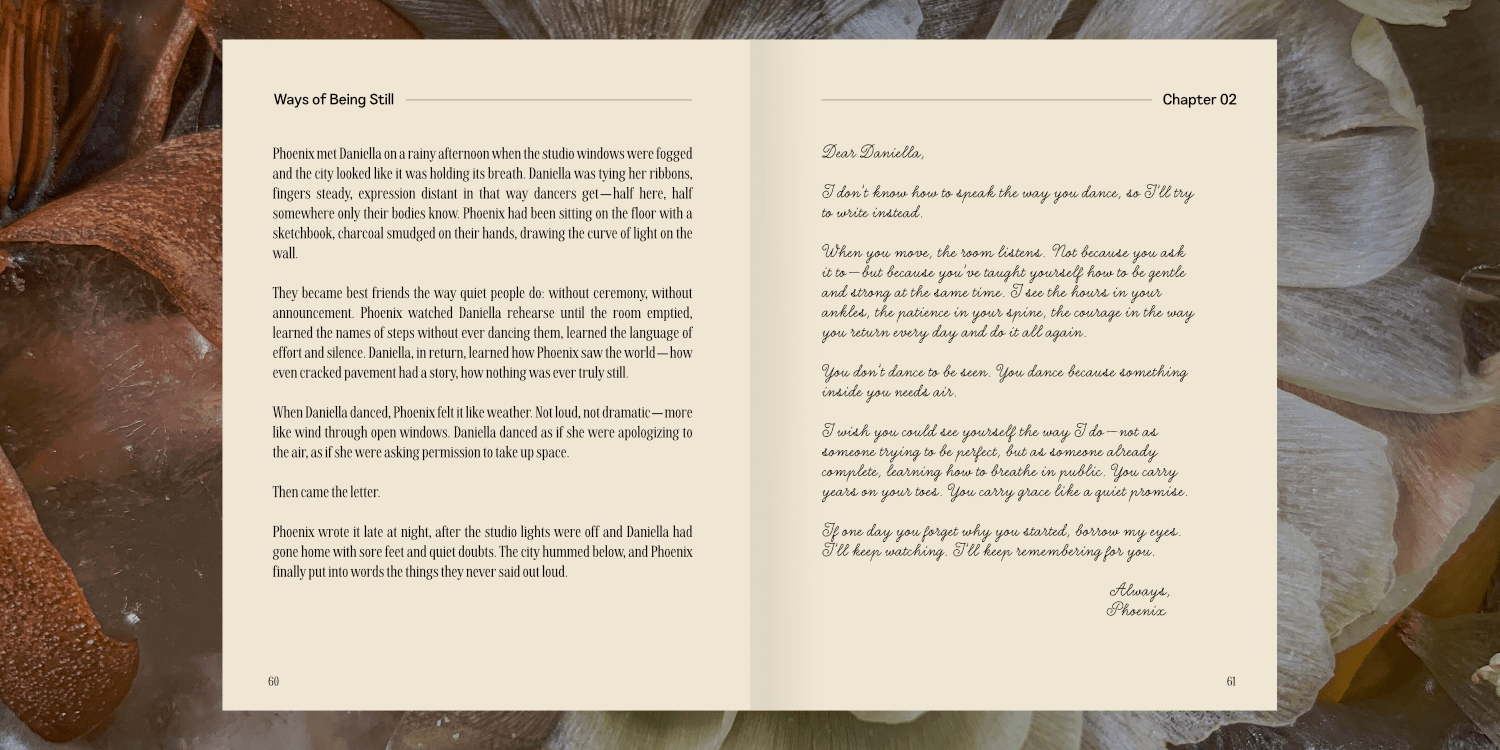 Ways of Being Still
Phoenix met Daniella on a rainy afternoon when the studio windows were fogged
and the city looked like it was holding its breath. Daniella was tying her ribbons,
fingers steady, expression distant in that way dancers get—half here, half
somewhere only their bodies know. Phoenix had been sitting on the floor with a
sketchbook, charcoal smudged on their hands, drawing the curve of light on the
wall.
They became best friends the way quiet people do: without ceremony, without
announcement. Phoenix watched Daniella rehearse until the room emptied,
learned the names of steps without ever dancing them, learned the language of
effort and silence. Daniella, in return, learned how Phoenix saw the world—how
even cracked pavement had a story, how nothing was ever truly still.
When Daniella danced, Phoenix felt it like weather. Not loud, not dramatic—more
like wind through open windows. Daniella danced as if she were apologizing to
the air, as if she were asking permission to take up space.
Then came the letter.
Phoenix wrote it late at night, after the studio lights were off and Daniella had
gone home with sore feet and quiet doubts. The city hummed below, and Phoenix
finally put into words the things they never said out loud.
60
Chapter 02
Dear Daniella,
I don't know how to speak the way you dance, so I'll try
to write instead.
When you move, the room listens. Not because you ask
it to—but because you've taught yourself how to be gentle
and strong at the same time. I see the hours in your
ankles, the patience in your spine, the courage in the way
you return every day and do it all again.
You don't dance to be seen. You dance because something
inside you needs air.
I wish you could see yourself the way I do—not as
someone trying to be perfect, but as someone already
complete, learning how to breathe in public. You carry
years on your toes. You carry grace like a quiet promise.
If one day you forget why you started, borrow my eyes.
I'll keep watching. I'll keep remembering for you.
Always,
Phoenix
61